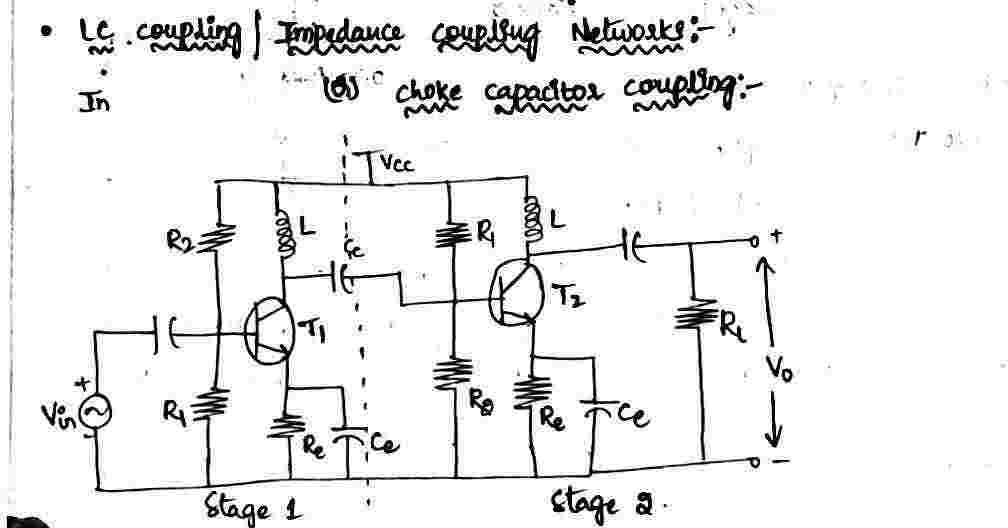 • LC coupling | Impedance coupling Networks:-
In (or) choke capacitor coupling:-
Vcc
R2 L Cc R1 L +
T1 T2 RL
Vo
+
Vin R1 Re Ce R2 Re Ce
- -
Stage 1 Stage 2.